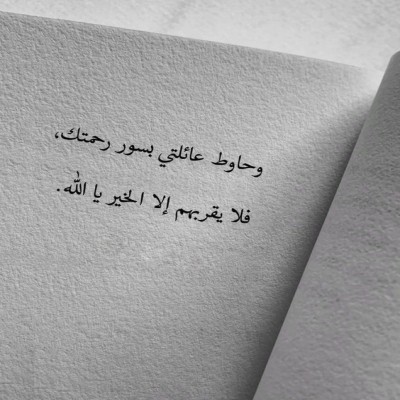 وحاوط عائلتي بسور رحمتك،
فلا يقربهم إلا الخير يا الله.